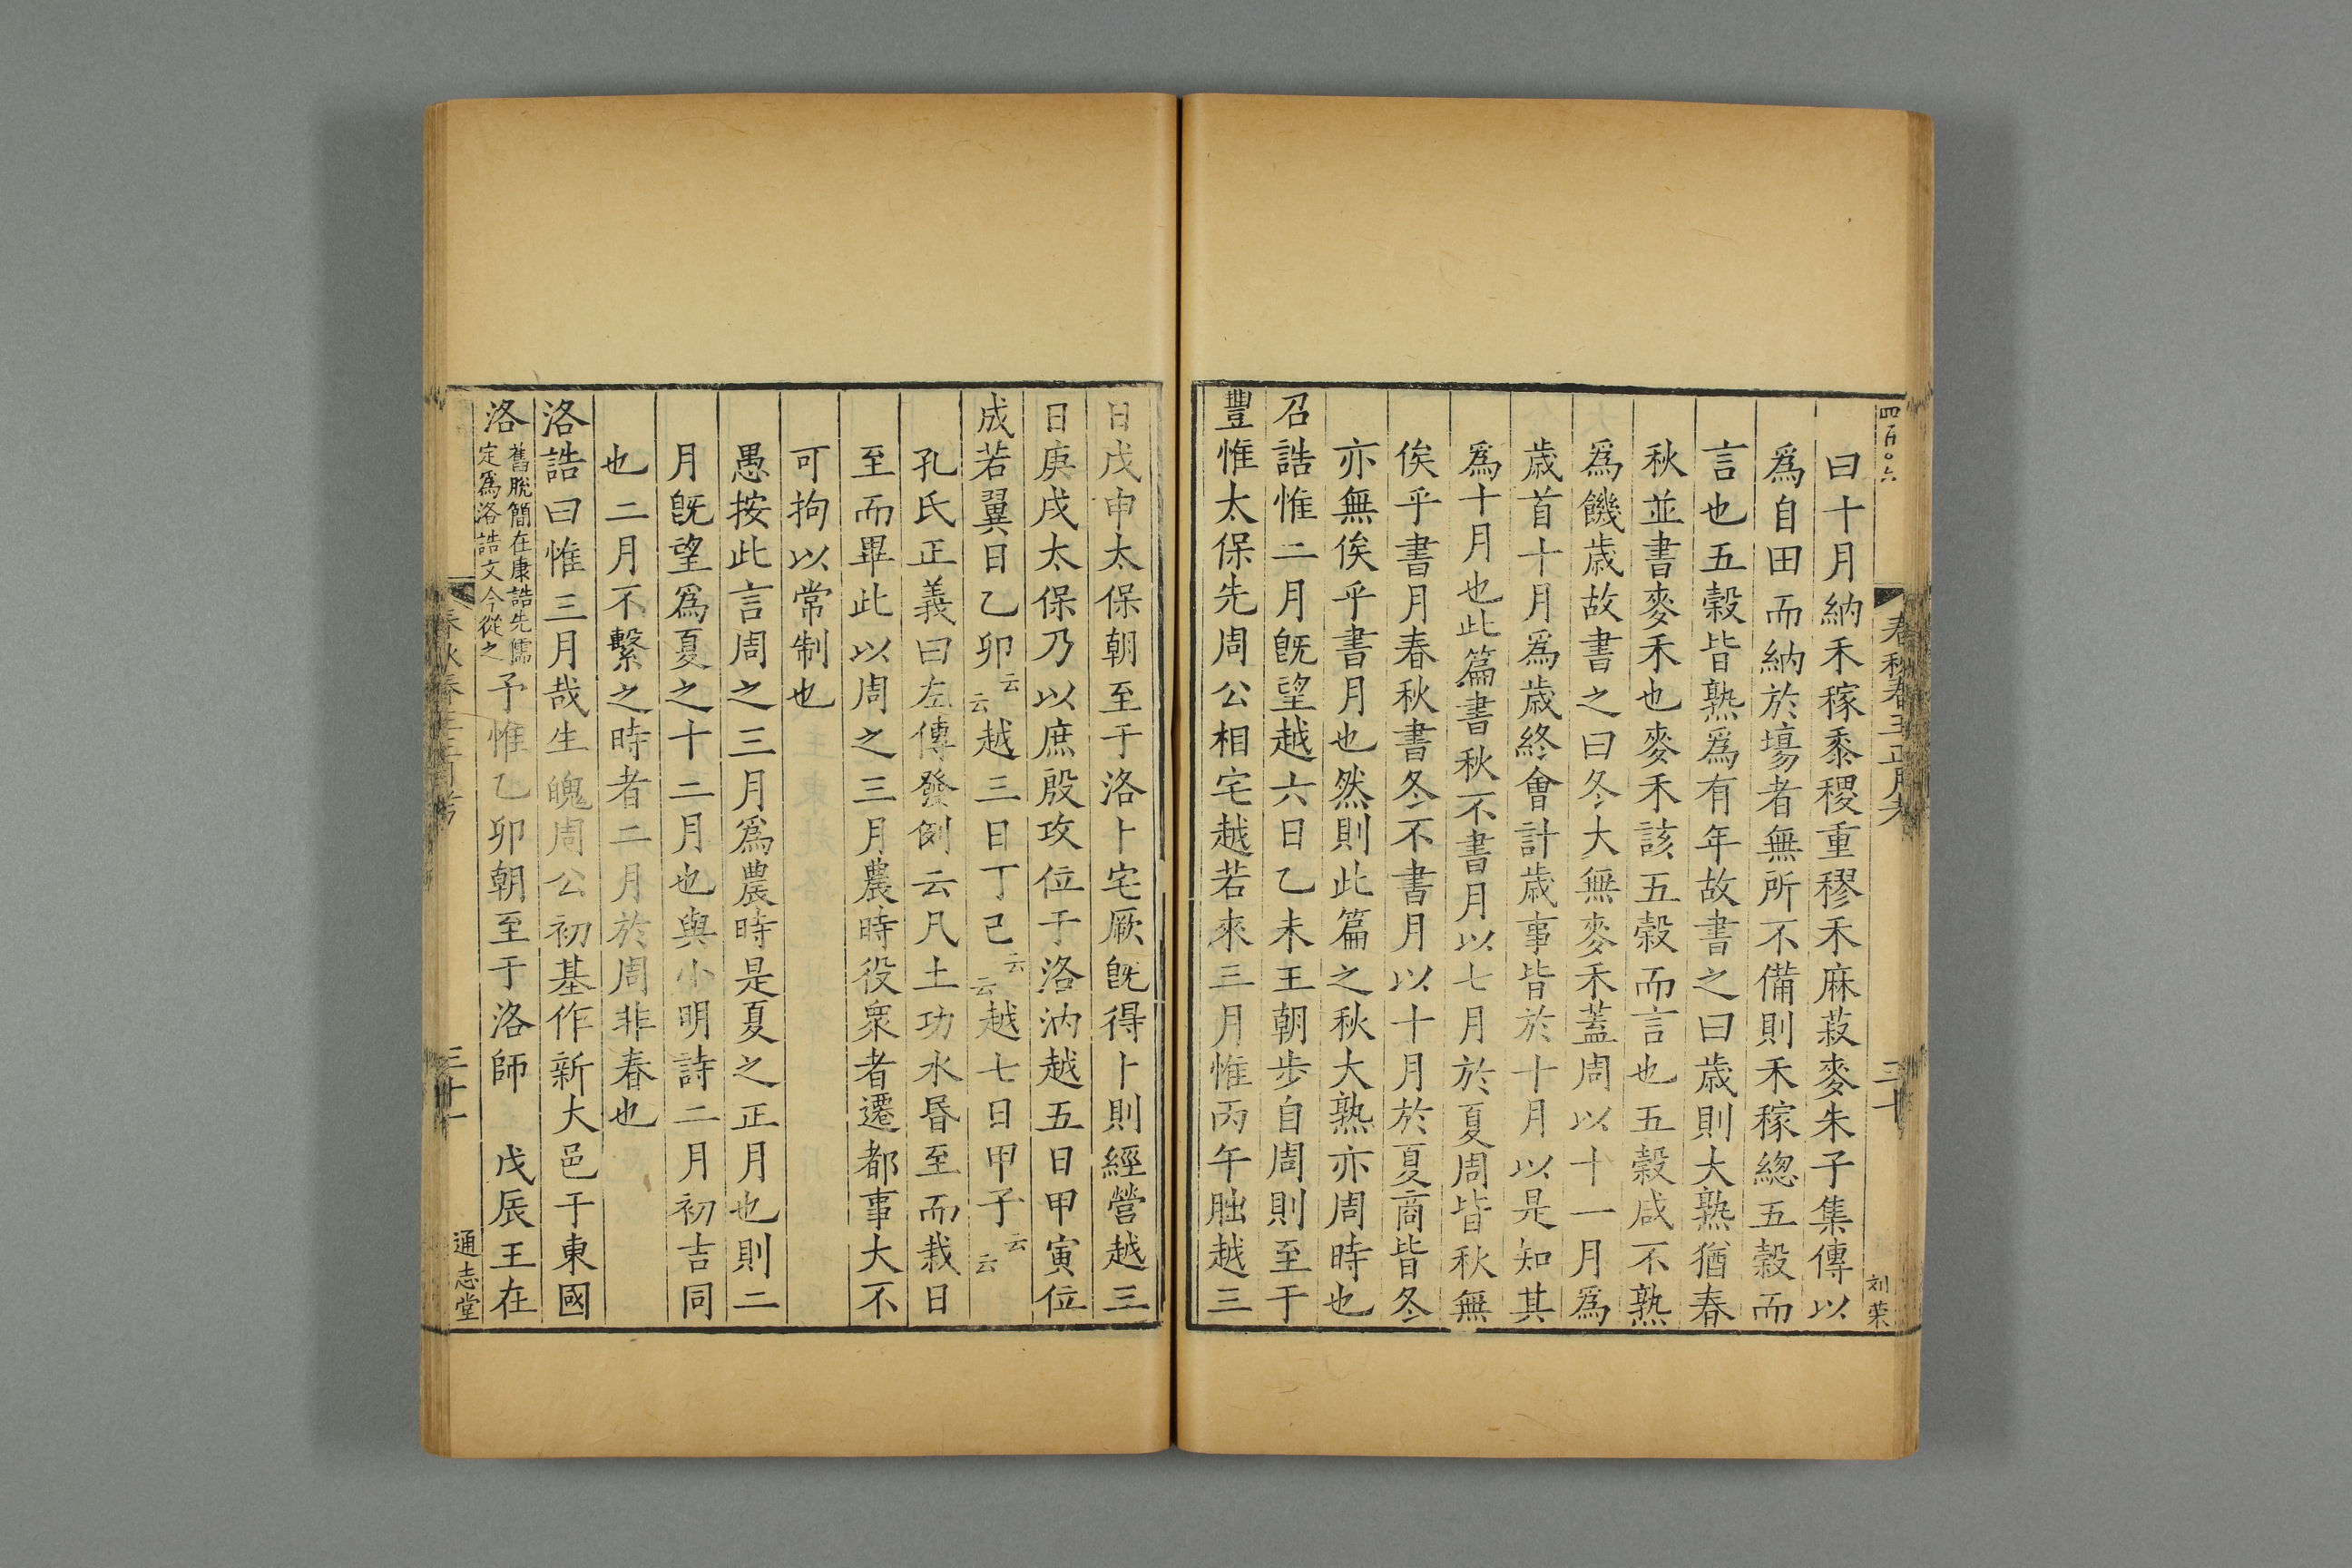 四百〇六
春秋春王正月考
三十
刘荣
曰十月納禾稼黍稷重穋禾麻菽麥朱子集傳以
爲自田而納於場者無所不備則禾稼緫五穀而
言也五穀皆熟爲有年故書之曰歳則大熟猶春
秋並書麥禾也麥禾該五穀而言也五穀咸不熟
爲饑歳故書之曰冬大無麥禾蓋周以十一月爲
歳首十月爲歳終會計歳事皆於十月以是知其
爲十月也此篇書秋不書月以七月於夏周皆秋無
俟乎書月春秋書冬不書月以十月於夏商皆冬
亦無俟乎書月也然則此篇之秋大熟亦周時也
召誥惟二月旣望越六日乙未王朝步自周則至于
豐惟太保先周公相宅越若來三月惟丙午朏越三
日戊申太保朝至于洛卜宅厥旣得卜則經營越三
日庚戌太保乃以庶殷攻位于洛汭越五日甲寅位
成若翼日乙卯云云越三日丁己云云越七日甲子云云
孔氏正義曰左傳發例云凡土功水昏至而栽日
至而畢此以周之三月農時役衆者遷都事大不
可拘以常制也
愚按此言周之三月爲農時是夏之正月也則二
月旣望爲夏之十二月也與小明詩二月初吉同
也二月不繫之時者二月於周非春也
洛誥曰惟三月哉生魄周公初基作新大邑于東國
洛舊脫簡在康誥先儒定爲洛誥文今從之予惟乙卯朝至于洛師　戊辰王在
春秋春王正月考
三十一
通志堂